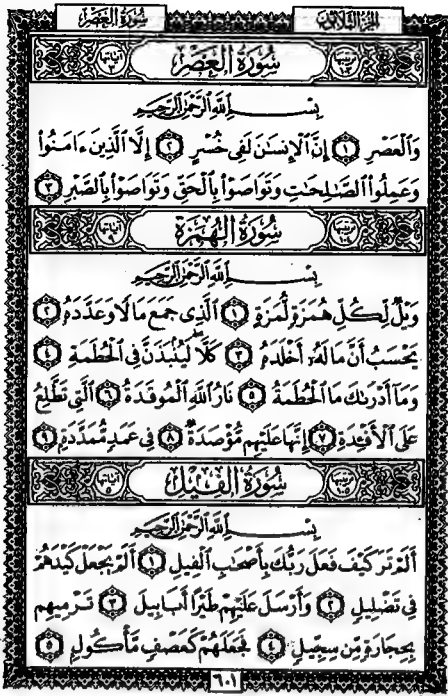 سُورَةُ العَصْرِ الجُزْءُ الثَّلَاثُونَ
سُورَةُ العَصْرِ
بِسْمِ اللَّهِ الرَّحْمَٰنِ الرَّحِيمِ
وَالْعَصْرِ ١ إِنَّ الْإِنسَٰنَ لَفِى خُسْرٍ ٢ إِلَّا الَّذِينَ ءَامَنُوا
وَعَمِلُوا الصَّٰلِحَٰتِ وَتَوَاصَوْا بِالْحَقِّ وَتَوَاصَوْا بِالصَّبْرِ ٣
سُورَةُ الهُمَزَةِ
بِسْمِ اللَّهِ الرَّحْمَٰنِ الرَّحِيمِ
وَيْلٌ لِّكُلِّ هُمَزَةٍ لُّمَزَةٍ ١ الَّذِى جَمَعَ مَالًا وَعَدَّدَهُ ٢
يَحْسَبُ أَنَّ مَالَهُۥ أَخْلَدَهُ ٣ كَلَّا لَيُنۢبَذَنَّ فِى الْحُطَمَةِ ٤
وَمَا أَدْرَىٰكَ مَا الْحُطَمَةُ ٥ نَارُ اللَّهِ الْمُوقَدَةُ ٦ الَّتِى تَطَّلِعُ
عَلَى الْأَفْـِٔدَةِ ٧ إِنَّهَا عَلَيْهِم مُّؤْصَدَةٌ ٨ فِى عَمَدٍ مُّمَدَّدَةٍ ٩
سُورَةُ الفِيلِ
بِسْمِ اللَّهِ الرَّحْمَٰنِ الرَّحِيمِ
أَلَمْ تَرَ كَيْفَ فَعَلَ رَبُّكَ بِأَصْحَٰبِ الْفِيلِ ١ أَلَمْ يَجْعَلْ كَيْدَهُمْ
فِى تَضْلِيلٍ ٢ وَأَرْسَلَ عَلَيْهِمْ طَيْرًا أَبَابِيلَ ٣ تَرْمِيهِم
بِحِجَارَةٍ مِّن سِجِّيلٍ ٤ فَجَعَلَهُمْ كَعَصْفٍ مَّأْكُولٍ ٥
٦٠١